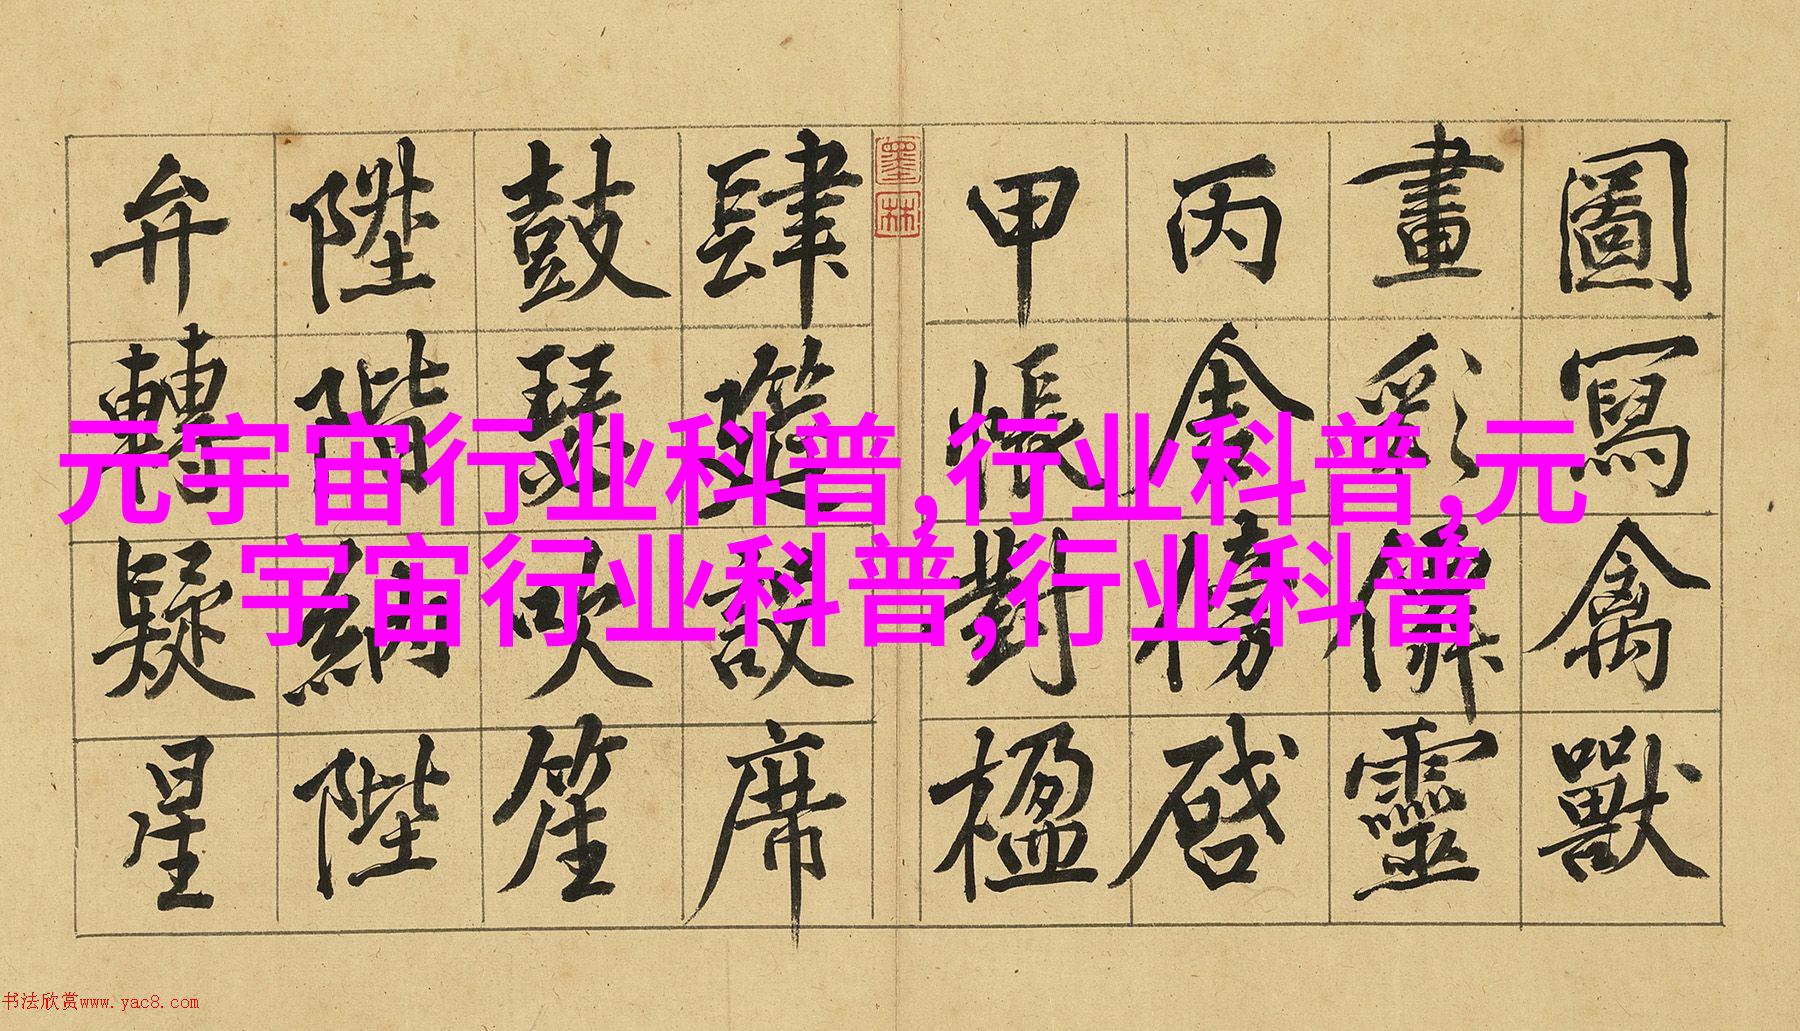 圖寫禽獸
畫彩僊靈
丙舍傍啓
甲帳對楹
墨林
肆筵設席
鼓瑟吹笙
陞階納陛
弁轉疑星
元宇宙行业科普,行业科普,元
宇宙行业科普,行业科普
书法欣赏www.yac8.com